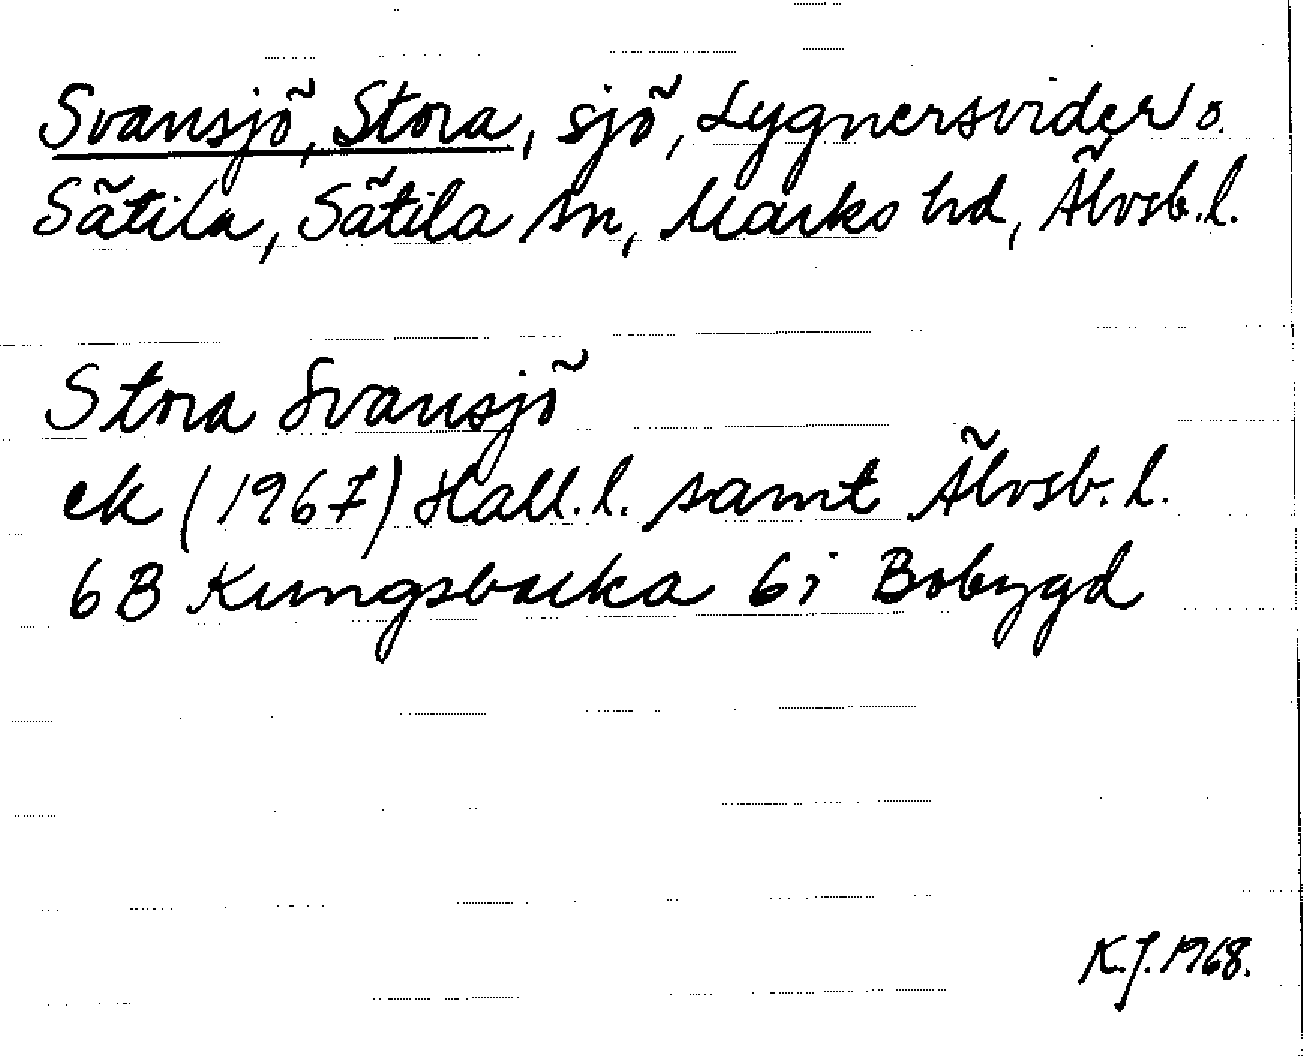 Svansjö, Stora, sjö, Lygnersvider o.
Sätila, Sätila sn, Marks hd, Älvsb. l.
Stora Svansjö
ek (1967) Hall. l. samt Älvsb. l.
6B Kungsbacka 6i Bobygd
K.J. 1968.